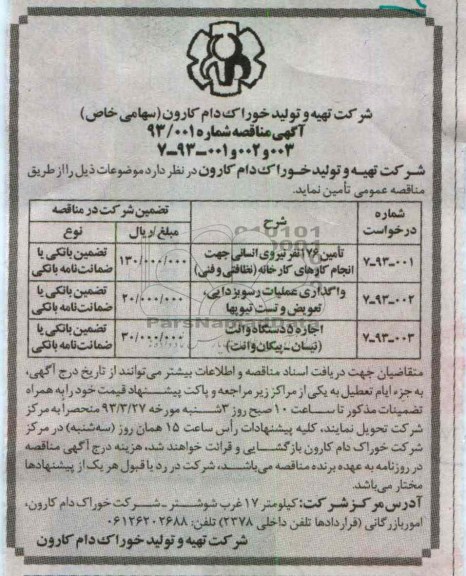 شرکت تهیه و تولید خوراک دام کارون (سهامی خاص)
آگهی مناقصه شماره ۹۳/۰۰۱
۰۰۳ و ۰۰۲ و ۰۰۱-۹۳-۷
شرکت تهیه و تولید خوراک دام کارون در نظر دارد موضوعات ذیل را از طریق
مناقصه عمومی تأمین نماید.
شماره درخواست | شرح | تضمین شرکت در مناقصه
مبلغ/ریال | نوع
۷-۹۳-۰۰۱ | تأمین ۱۷ نفر نیروی انسانی جهت انجام کارهای کارخانه (نظافتی و فنی) | ۱۳۰/۰۰۰/۰۰۰ | تضمین بانکی یا ضمانت نامه بانکی
۷-۹۳-۰۰۲ | واگذاری عملیات رسوبزدایی، تعویض و تست تیوپها | ۲۰/۰۰۰/۰۰۰ | تضمین بانکی یا ضمانت نامه بانکی
۷-۹۳-۰۰۳ | اجاره ۵ دستگاه وانت (نیسان - پیکان وانت) | ۳۰/۰۰۰/۰۰۰ | تضمین بانکی یا ضمانت نامه بانکی
متقاضیان جهت دریافت اسناد مناقصه و اطلاعات بیشتر می‌توانند از تاریخ درج آگهی،
به جزء ایام تعطیل به یکی از مراکز زیر مراجعه و پاکت پیشنهاد قیمت خود را به همراه
تضمینات مذکور تا ساعت ۱۰ صبح روز ۳شنبه مورخه ۹۳/۳/۲۷ منحصراً به مرکز
شرکت تحویل نمایند، کلیه پیشنهادات رأس ساعت ۱۵ همان روز (سه‌شنبه) در مرکز
شرکت خوراک دام کارون بازگشایی و قرائت خواهند شد، هزینه درج آگهی مناقصه
در روزنامه به عهده برنده مناقصه می‌باشد، شرکت در رد یا قبول هر یک از پیشنهادها
مختار می‌باشد.
آدرس مرکز شرکت: کیلومتر ۱۷ غرب شوشتر - شرکت خوراک دام کارون،
امور بازرگانی (قراردادها تلفن داخلی ۲۳۷۸) تلفن: ۰۶۱۲۶۲۰۲۶۸۸
شرکت تهیه و تولید خوراک دام کارون